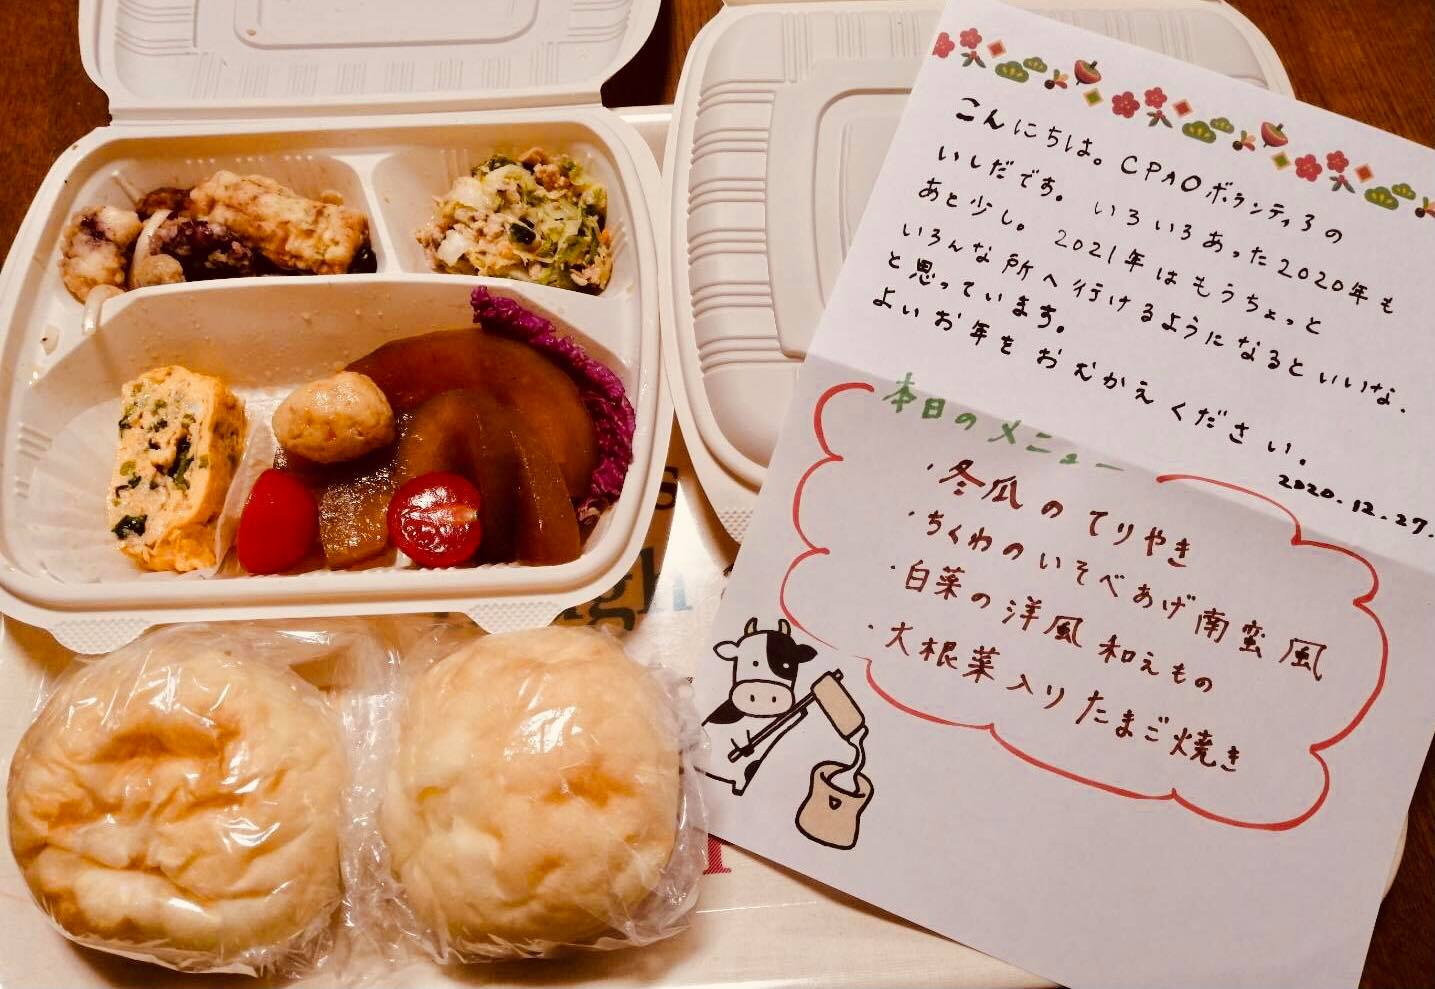 こんにちは。CPAOボランティアの
いしだです。いろいろあった2020年も
あと少し。2021年はもうちょっと
いろんな所へ行けるようになるといいな、
と思っています。
よいお年をおむかえください。
2020.12.27.
本日のメニュー
・冬瓜のてりやき
・ちくわのいそべあげ南蛮風
・白菜の洋風和えもの
・大根菜入りたまご焼き